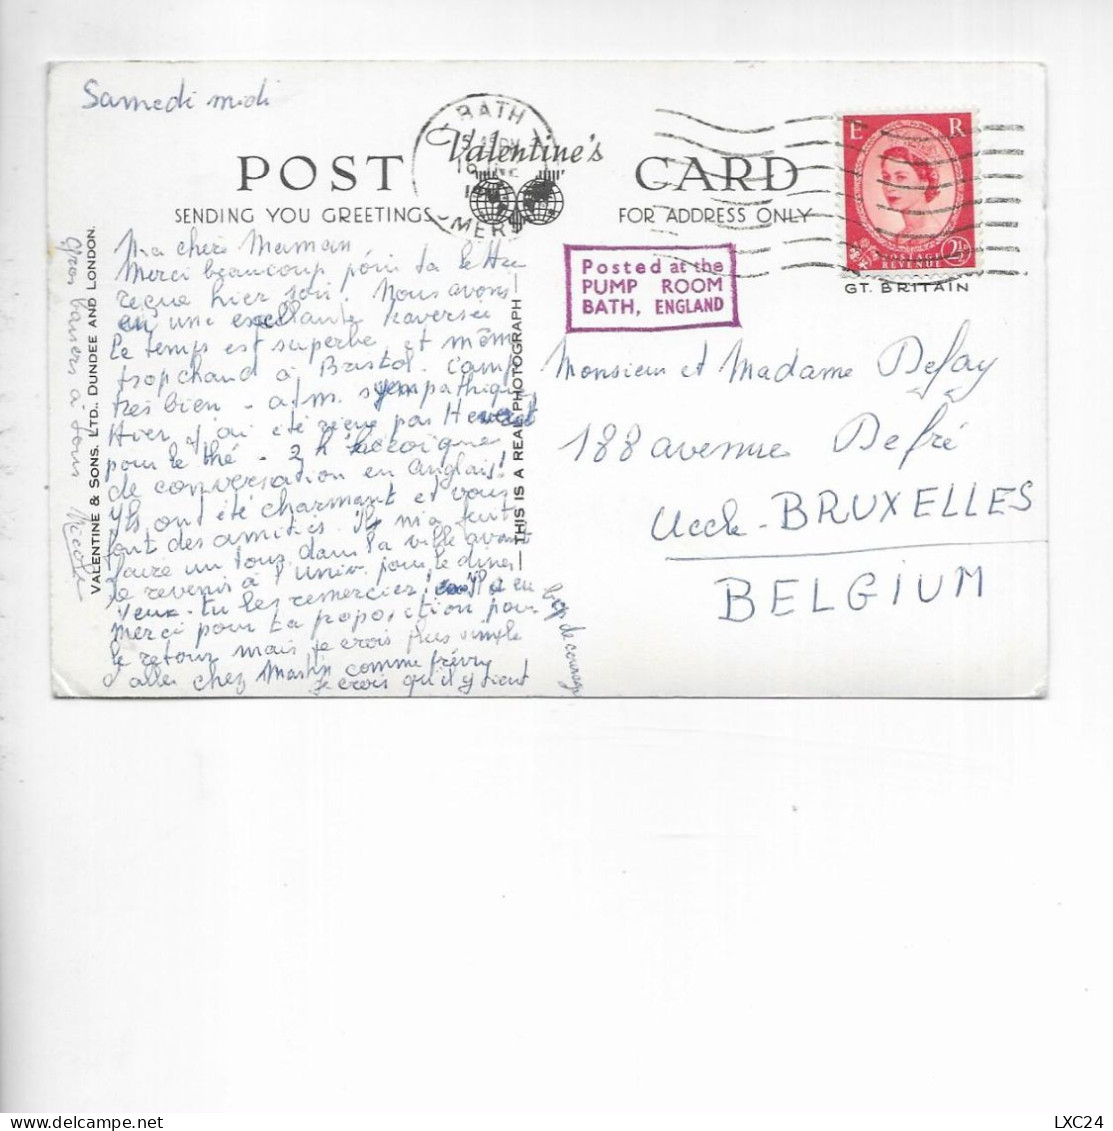 Samedi midi
BATH
Valentine's
POST CARD
SENDING YOU GREETINGS
FOR ADDRESS ONLY
E R
POSTAGE REVENUE 2½
GT. BRITAIN
Posted at the
PUMP ROOM
BATH, ENGLAND
Monsieur et Madame Defay
188 avenue Defré
Uccle-BRUXELLES
BELGIUM
Ma chère Maman
Merci beaucoup pour ta lettre
reçue hier soir! Nous avons
eu une excellente traversée
Le temps est superbe et même
trop chaud à Bristol. Camp
très bien - atm. sympathique
Hier j'ai été reçue par
pour le thé - 2 h
de conversation en anglais!
Ils ont été charmant et vous
font des amitiés. Ils m'a fait
faire un tour dans la ville avant
de revenir à l'Univ. pour le diner!
Veux-tu les remercier!
merci pour ta proposition pour
le retour mais je crois plus simple
d'aller chez Martin comme prévu
je crois qu'il y tient
Gros baisers à tous
VALENTINE & SONS. LTD., DUNDEE AND LONDON.
THIS IS A REAL PHOTOGRAPH
LXC24